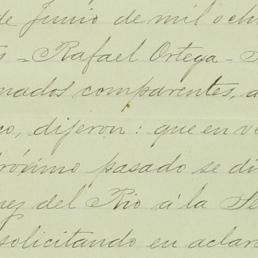 de Junio de mil och
s - Rafael Ortega -
nados comparentes, a
co, dijeron: que en v
róximo pasado se di
rez del Rio á la Se
solicitando en aclar